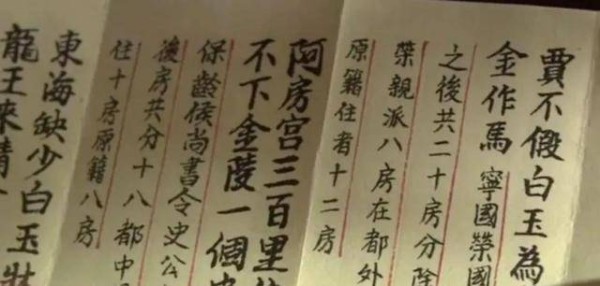 賈不假白玉為
金作馬 寧國榮國
之後共二十房分除
榮親派八房在都外
原籍住者十二房
阿房宮三百里
不下金陵一個
保齡候尚書令史公
後房共分十八都中
住十房原籍八房
東海缺少白玉牀
龍王來請